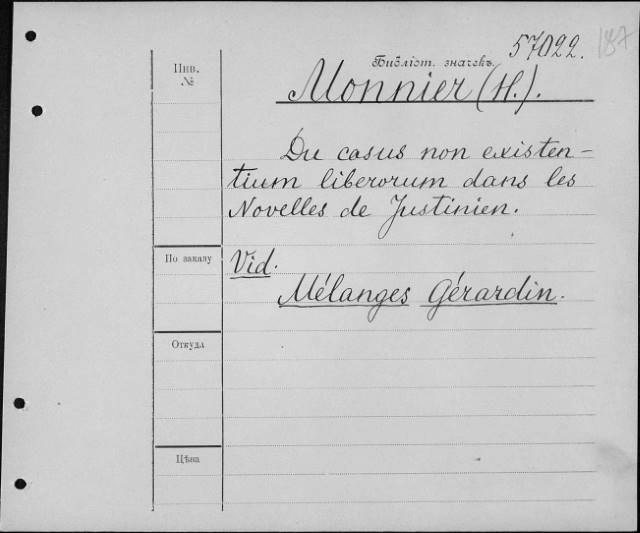 57022. 187
Библіот. значекъ.
Инв.
№
Monnier (H.).
Du casus non existen-
tium liberorum dans les
Novelles de Justinien.
По заказу
Vid.
Mélanges Gérardin.
Откуда
Цѣна